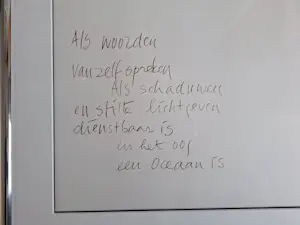 Als woorden
vanzelf spreken
Als schaduwen
en stilte lichtgeven
dienstbaar is
in het oog
een oceaan is